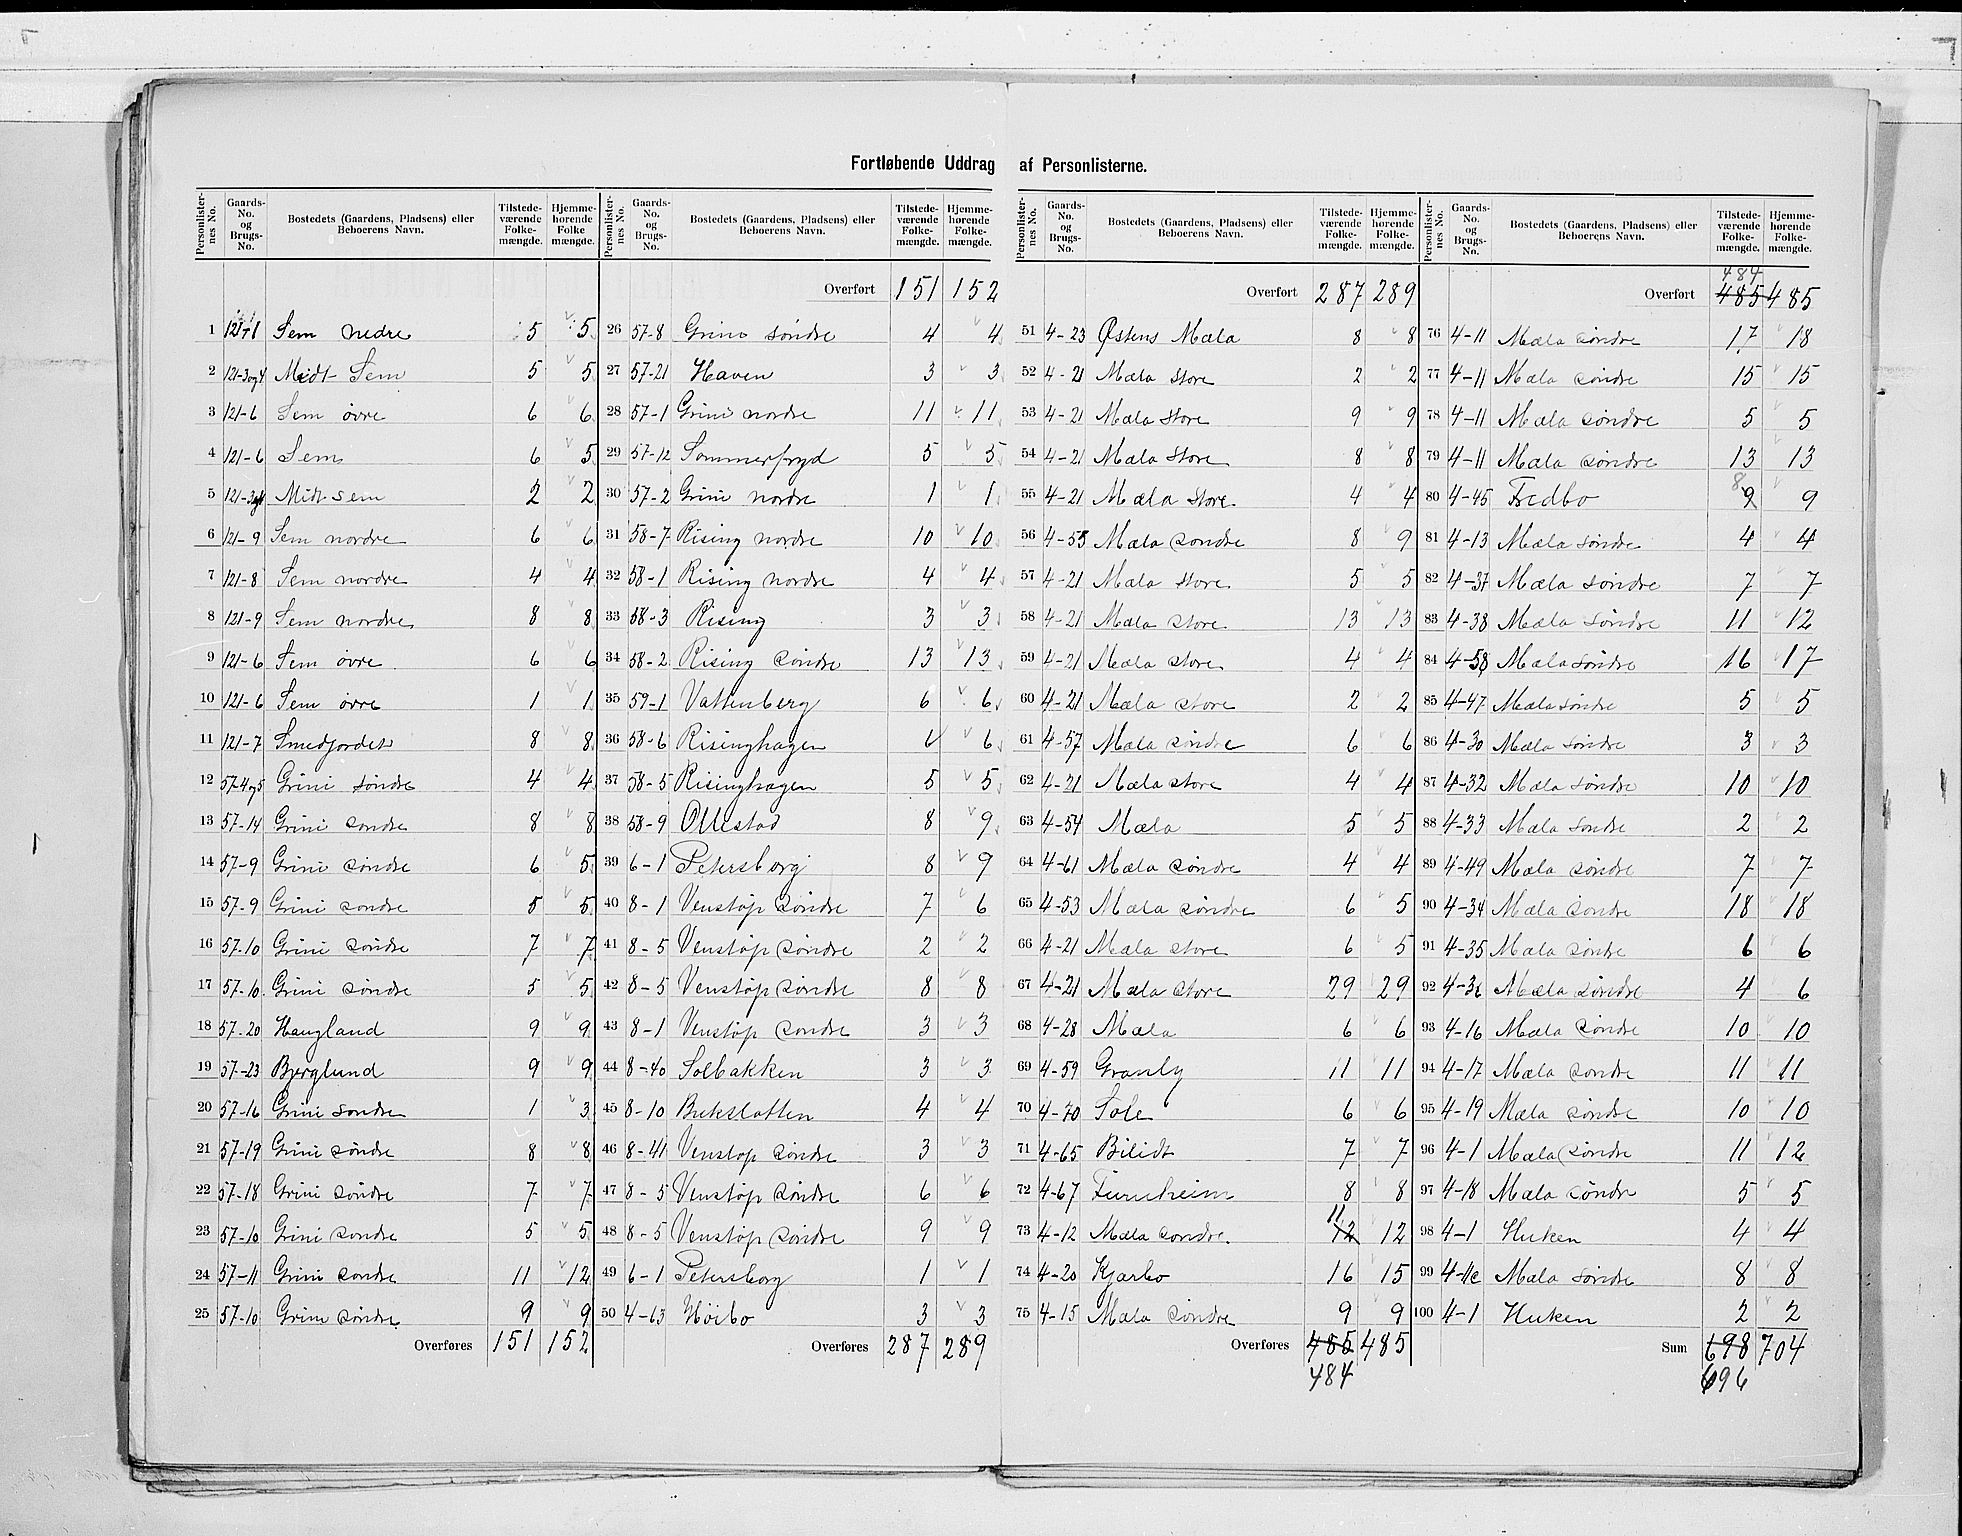 Fortløbende Uddrag af Personlisterne.
Personlisternes No. Gaards-No. og Brugs-No. Bostedets (Gaardens, Pladsens) eller Beboerens Navn. Tilstedeværende Folkemængde. Hjemmehørende Folkemængde.
1 121-1 Sem nedre 5 5
2 121-3og4 Midt-Sem 5 5
3 121-6 Sem øvre 6 6
4 121-6 Sem 6 5
5 121-3og4 Midt sem 2 2
6 121-9 Sem nordre 6 6
7 121-8 Sem nordre 4 4
8 121-9 Sem nordre 8 8
9 121-6 Sem øvre 6 6
10 121-6 Sem øvre 1 1
11 121-7 Smedjordet 8 8
12 57-4og5 Grini søndre 4 4
13 57-14 Grini søndre 8 8
14 57-9 Grini søndre 6 5
15 57-9 Grini søndre 5 5
16 57-10 Grini søndre 7 7
17 57-10 Grini søndre 5 5
18 57-20 Haugland 9 9
19 57-23 Bjerglund 9 9
20 57-16 Grini søndre 1 3
21 57-19 Grini søndre 8 8
22 57-18 Grini søndre 7 7
23 57-10 Grini søndre 5 5
24 57-11 Grini søndre 11 12
25 57-10 Grini søndre 9 9
Overføres 151 152
Personlisternes No. Gaards-No. og Brugs-No. Bostedets (Gaardens, Pladsens) eller Beboerens Navn. Tilstedeværende Folkemængde. Hjemmehørende Folkemængde.
Overført 151 152
26 57-8 Grini søndre 4 4
27 57-21 Haven 3 3
28 57-1 Grini nordre 11 11
29 57-12 Sommerfryd 5 5
30 57-2 Grini nordre 1 1
31 58-7 Rising nordre 10 10
32 58-1 Rising nordre 4 4
33 58-3 Rising 3 3
34 58-2 Rising søndre 13 13
35 59-1 Vattenberg 6 6
36 58-6 Risinghagen 6 6
37 58-5 Risinghagen 5 5
38 58-9 Ollestad 8 9
39 6-1 Petersborg 8 9
40 8-1 Venstøp søndre 7 6
41 8-5 Venstøp søndre 2 2
42 8-5 Venstøp søndre 8 8
43 8-1 Venstøp søndre 3 3
44 8-40 Solbakken 3 3
45 8-10 Bukslatten 4 4
46 8-41 Venstøp søndre 3 3
47 8-5 Venstøp søndre 6 6
48 8-5 Venstøp søndre 9 9
49 6-1 Petersborg 1 1
50 4-63 Høibo 3 3
Overføres 287 289
Personlisternes No. Gaards-No. og Brugs-No. Bostedets (Gaardens, Pladsens) eller Beboerens Navn. Tilstedeværende Folkemængde. Hjemmehørende Folkemængde.
Overført 287 289
51 4-23 Østens Mæla 8 8
52 4-21 Mæla store 2 2
53 4-21 Mæla store 9 9
54 4-21 Mæla store 8 8
55 4-21 Mæla store 4 4
56 4-53 Mæla søndre 8 9
57 4-21 Mæla store 5 5
58 4-21 Mæla store 13 13
59 4-21 Mæla store 4 4
60 4-21 Mæla store 2 2
61 4-57 Mæla søndre 6 6
62 4-21 Mæla store 4 4
63 4-54 Mæla 5 5
64 4-61 Mæla søndre 4 4
65 4-53 Mæla søndre 6 5
66 4-21 Mæla store 6 5
67 4-21 Mæla store 29 29
68 4-28 Mæla 6 6
69 4-59 Granly 11 11
70 4-70 Sole 6 6
71 4-65 Bilidt 7 7
72 4-67 Furuheim 8 8
73 4-12 Mæla søndre 12 11 12
74 4-20 Kjærbo 16 15
75 4-15 Mæla søndre 9 9
Overføres 485 485
484
Personlisternes No. Gaards-No. og Brugs-No. Bostedets (Gaardens, Pladsens) eller Beboerens Navn. Tilstedeværende Folkemængde. Hjemmehørende Folkemængde.
484
Overført 485 485
76 4-11 Mæla søndre 17 18
77 4-11 Mæla søndre 15 15
78 4-11 Mæla søndre 5 5
79 4-11 Mæla søndre 13 13
80 4-45 Fredbo 8 9 9
81 4-13 Mæla søndre 4 4
82 4-37 Mæla søndre 7 7
83 4-38 Mæla søndre 11 12
84 4-58 Mæla søndre 16 17
85 4-47 Mæla søndre 5 5
86 4-30 Mæla søndre 3 3
87 4-32 Mæla søndre 10 10
88 4-33 Mæla søndre 2 2
89 4-49 Mæla søndre 7 7
90 4-34 Mæla søndre 18 18
91 4-35 Mæla søndre 6 6
92 4-36 Mæla søndre 4 6
93 4-16 Mæla søndre 10 10
94 4-17 Mæla søndre 11 11
95 4-19 Mæla søndre 10 10
96 4-1 Mæla søndre 11 12
97 4-18 Mæla søndre 5 5
98 4-1 Huken 4 4
99 Mæla søndre 8 8
100 4-1 Huken 2 2
Sum 698 704
696